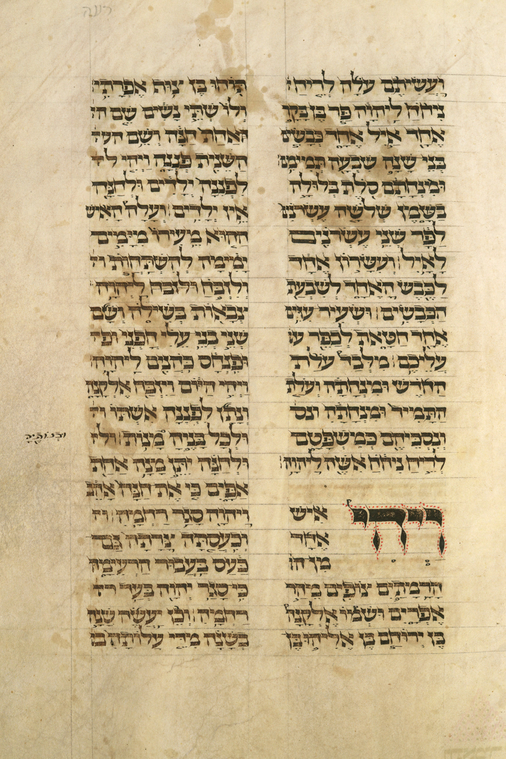 ועשיתם עלה לריח
ניחח ליהוה פר בן בקר
אחד איל אחד כבשים
בני שנה שבעה תמימם
ומנחתם סלת בלולה
בשמן שלשה עשרנים
לפר שני עשרנים
לאיל ועשרון אחד
לכבש האחד לשבעת
הכבשים ושעיר עזים
אחד חטאת לכפר ע
עליכם מלבד עלת
החדש ומנחתה ועלת
התמיד ומנחתה ונס
ונסכיהם כמשפטם
לריח ניחח אשה ליהוה
ויהי איש
אחד
מן הר
הרמתים צופים מהר
אפרים ושמו אלקנה
בן ירוחם בן אליהוא בן
תוחו בן צוף אפרתי
ולו שתי נשים שם ה
האחת חנה ושם הש
השנית פננה ויהי ל
לפננה ילדים ולחנה
אין ילדים ועלה האיש
ההוא מעירו מימים
ימימה להשתחות ול
ולזבח ליהוה
צבאות בשילה ושם
שני בני עלי חפני ופ
ופנחס כהנים ליהוה
ויהי היום ויזבח אלקנה
ונתן לפננה אשתו ול
ולכל בניה מנות
ובנותיה
ולחנה יתן מנה אחת
אפים כי את חנה אהב
ויהוה סגר רחמה
וכעסתה צרתה גם
כעס בעבור הרעמה
כי סגר יהוה בעד רח
רחמה וכן יעשה שנה
בשנה מדי עלותה ב